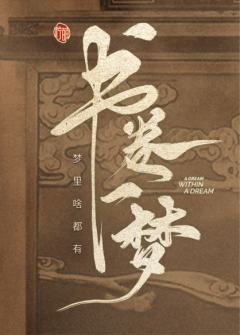 书卷一梦
梦里啥都有
A DREAM
WITHIN
A DREAM